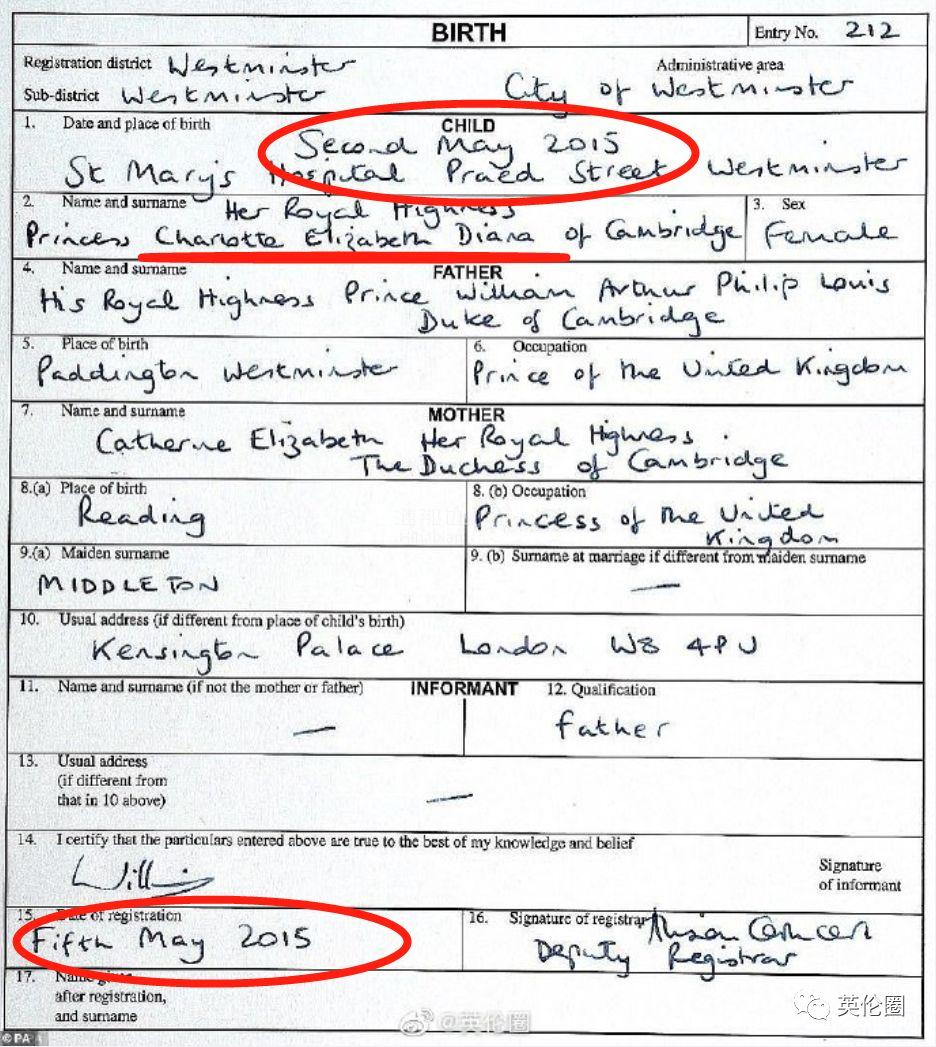 BIRTH
Entry No. 212
Registration district Westminster
Administrative area
Sub-district Westminster
City of Westminster
1. Date and place of birth
CHILD
Second May 2015
St Mary's Hospital Praed Street Westminster
2. Name and surname Her Royal Highness
3. Sex
Princess Charlotte Elizabeth Diana of Cambridge
Female
4. Name and surname
FATHER
His Royal Highness Prince William Arthur Philip Louis
Duke of Cambridge
5. Place of birth
6. Occupation
Paddington Westminster
Prince of the United Kingdom
7. Name and surname
MOTHER
Catherine Elizabeth Her Royal Highness
The Duchess of Cambridge
8.(a) Place of birth
8. (b) Occupation
Reading
Princess of the United
Kingdom
9.(a) Maiden surname
9. (b) Surname at marriage if different from maiden surname
MIDDLETON
—
10. Usual address (if different from place of child's birth)
Kensington Palace London W8 4PU
11. Name and surname (if not the mother or father)
INFORMANT
12. Qualification
—
father
13. Usual address
(if different from
that in 10 above)
—
14. I certify that the particulars entered above are true to the best of my knowledge and belief
Signature
of informant
15. Date of registration
16. Signature of registrar
Fifth May 2015
Deputy Registrar
17. Name given
after registration,
and surname
@英伦圈
英伦圈
© PA